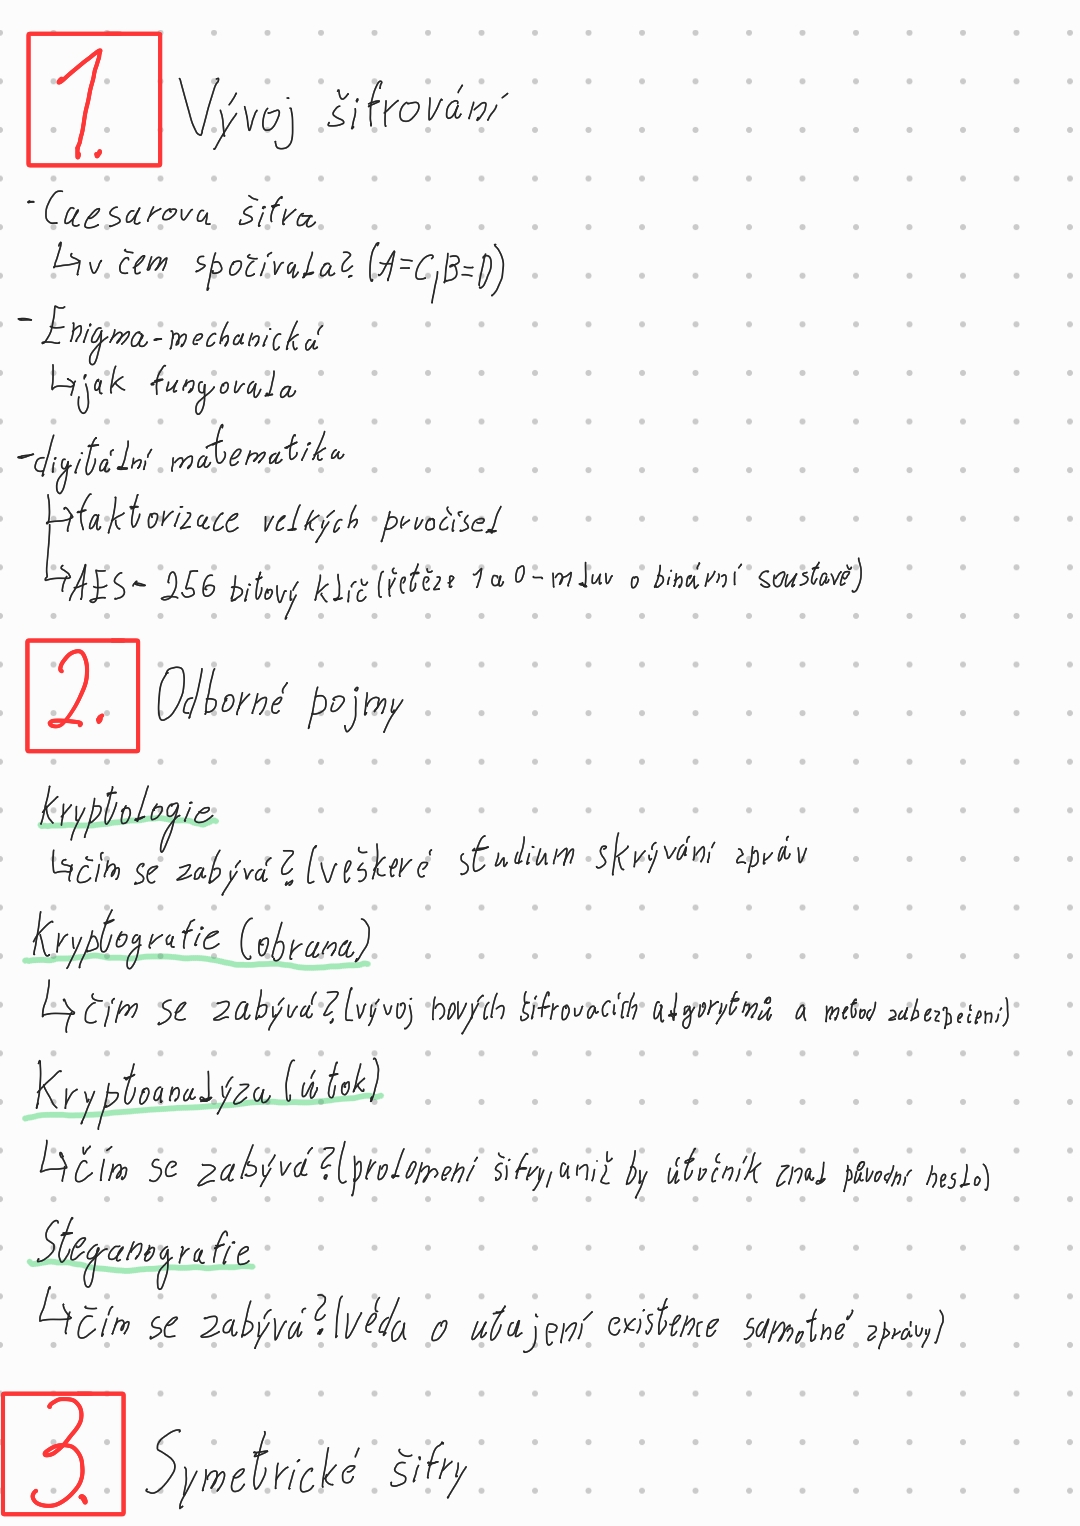 1. Vývoj šifrování
- Caesarova šifra
↳ v čem spočívala? (A=C, B=D)
- Enigma - mechanická
↳ jak fungovala
- digitální matematika
↳ faktorizace velkých prvočísel
↳ AES - 256 bitový klíč (řetěze 1 a 0 - mluv o binární soustavě)
2. Odborné pojmy
Kryptologie
↳ čím se zabývá? (veškeré studium skrývání zpráv
Kryptografie (obrana)
↳ čím se zabývá? (vývoj nových šifrovacích algorytmů a metod zabezpečení)
Kryptoanalýza (útok)
↳ čím se zabývá? (prolomení šifry, aniž by útočník znal původní heslo)
Steganografie
↳ čím se zabývá? (věda o utajení existence samotné zprávy)
3. Symetrické šifry